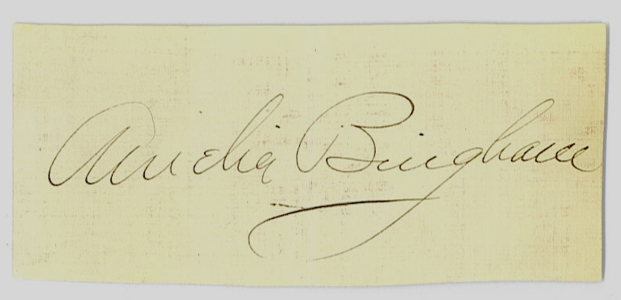 Amelia Bingham